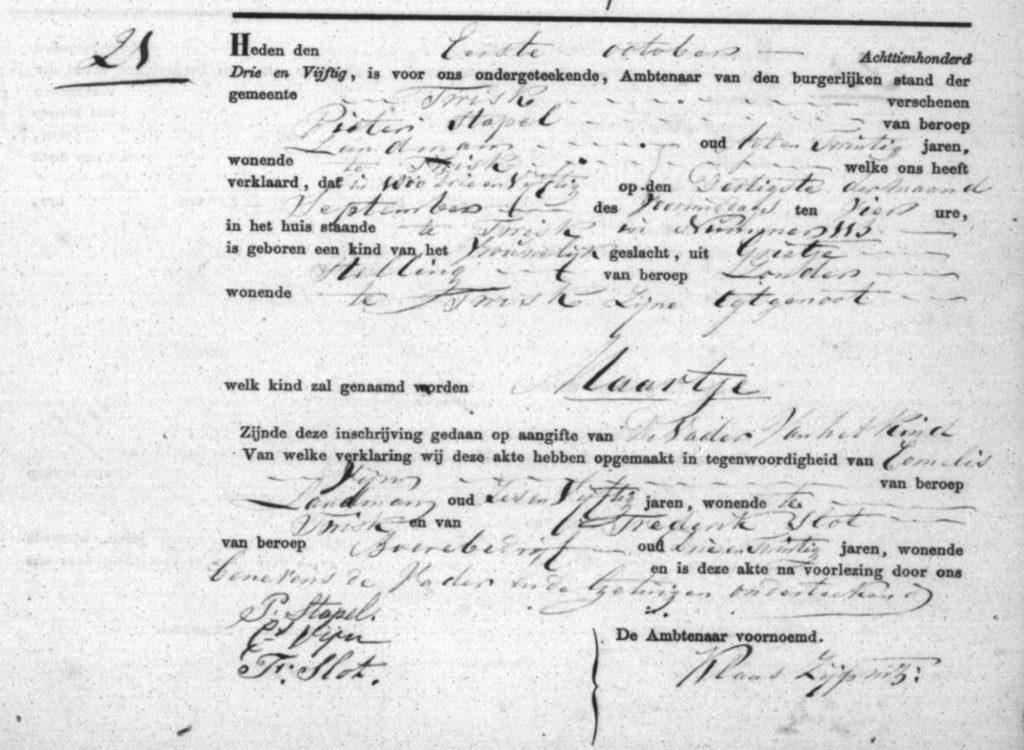 21
Heden den Eerste october Achttienhonderd
Drie en Vijftig, is voor ons ondergeteekende, Ambtenaar van den burgerlijken stand der
gemeente Twisk verschenen
Pieter Stapel van beroep
Landman oud Twintig jaren,
wonende te Twisk welke ons heeft
verklaard, dat in drie en Vijftig op den Dertigste der maand
September des Voormiddags ten Vier ure,
in het huis staande te Twisk in Nummer 115
is geboren een kind van het Vrouwelijk geslacht, uit Grietje
Stelling van beroep Zonder
wonende te Twisk Zijne Egtgenoot
welk kind zal genaamd worden Maartje
Zijnde deze inschrijving gedaan op aangifte van De Vader Van het Kind
Van welke verklaring wij deze akte hebben opgemaakt in tegenwoordigheid van Cornelis
Vijn van beroep
Landman oud Zes en Vijftig jaren, wonende te
Twisk en van Frederik Slot
van beroep Boerebedrijf oud Drie en Twintig jaren, wonende
en is deze akte na voorlezing door ons
benevens de Vader en de getuigen onderteekend
P. Stapel.
C. Vijn
Fr. Slot.
De Ambtenaar voornoemd.
Klaas Zijp